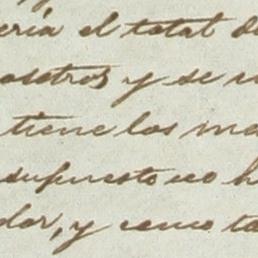 ería el total d
osotros y se u
tiene los ma
supuesto no h
dor, y como ta